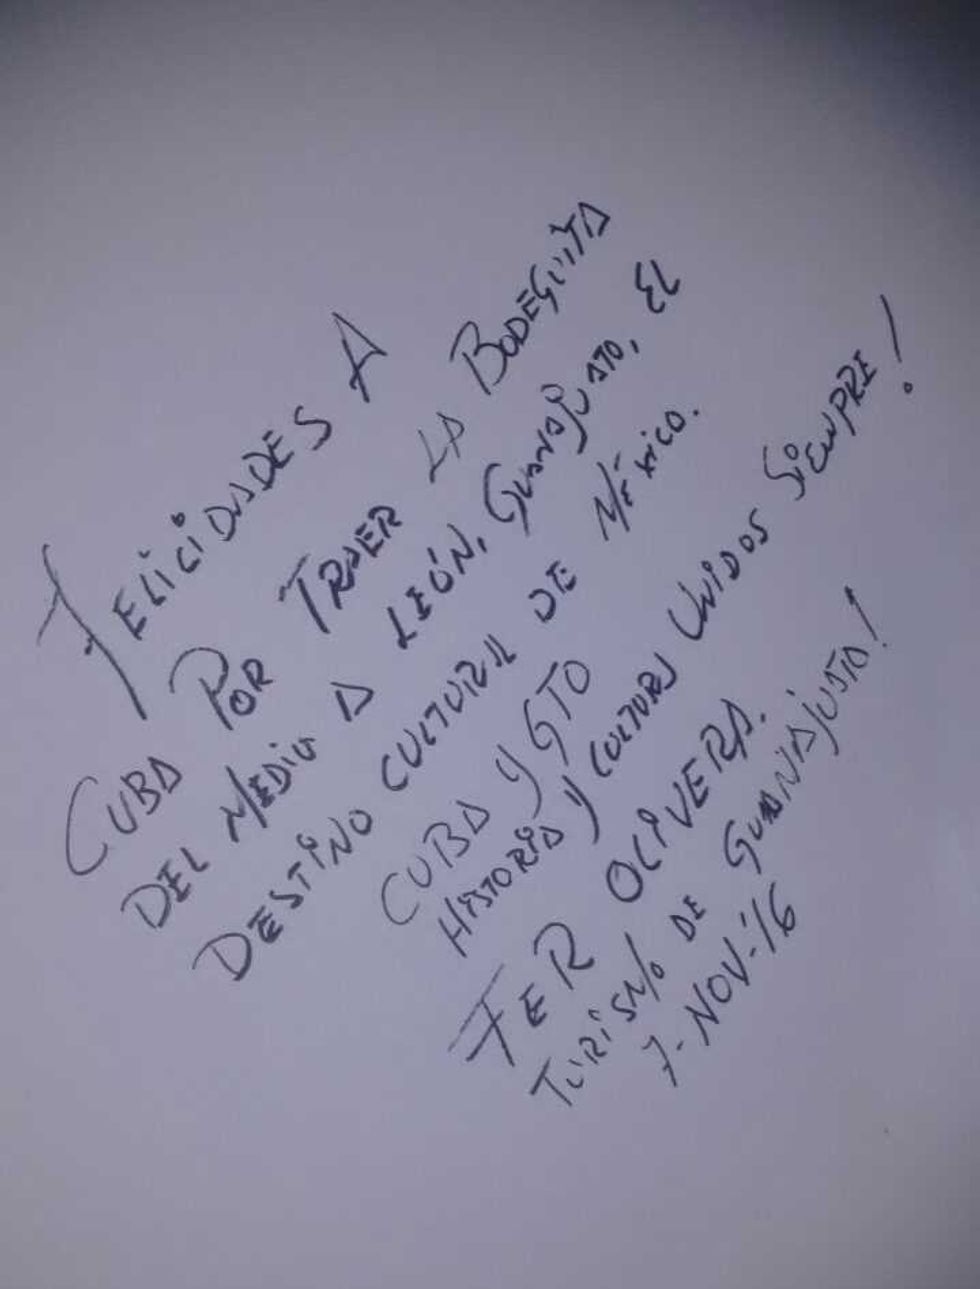 FELICIDADES A
CUBA POR TRAER LA BODEGUITA
DEL MEDIO A LEÓN, GUANAJUATO, EL
DESTINO CULTURAL DE MÉXICO.
CUBA Y GTO
HISTORIA Y CULTURAS UNIDOS SIEMPRE!
FER OLIVERA.
TURISMO DE GUANAJUATO!
7-NOV-16